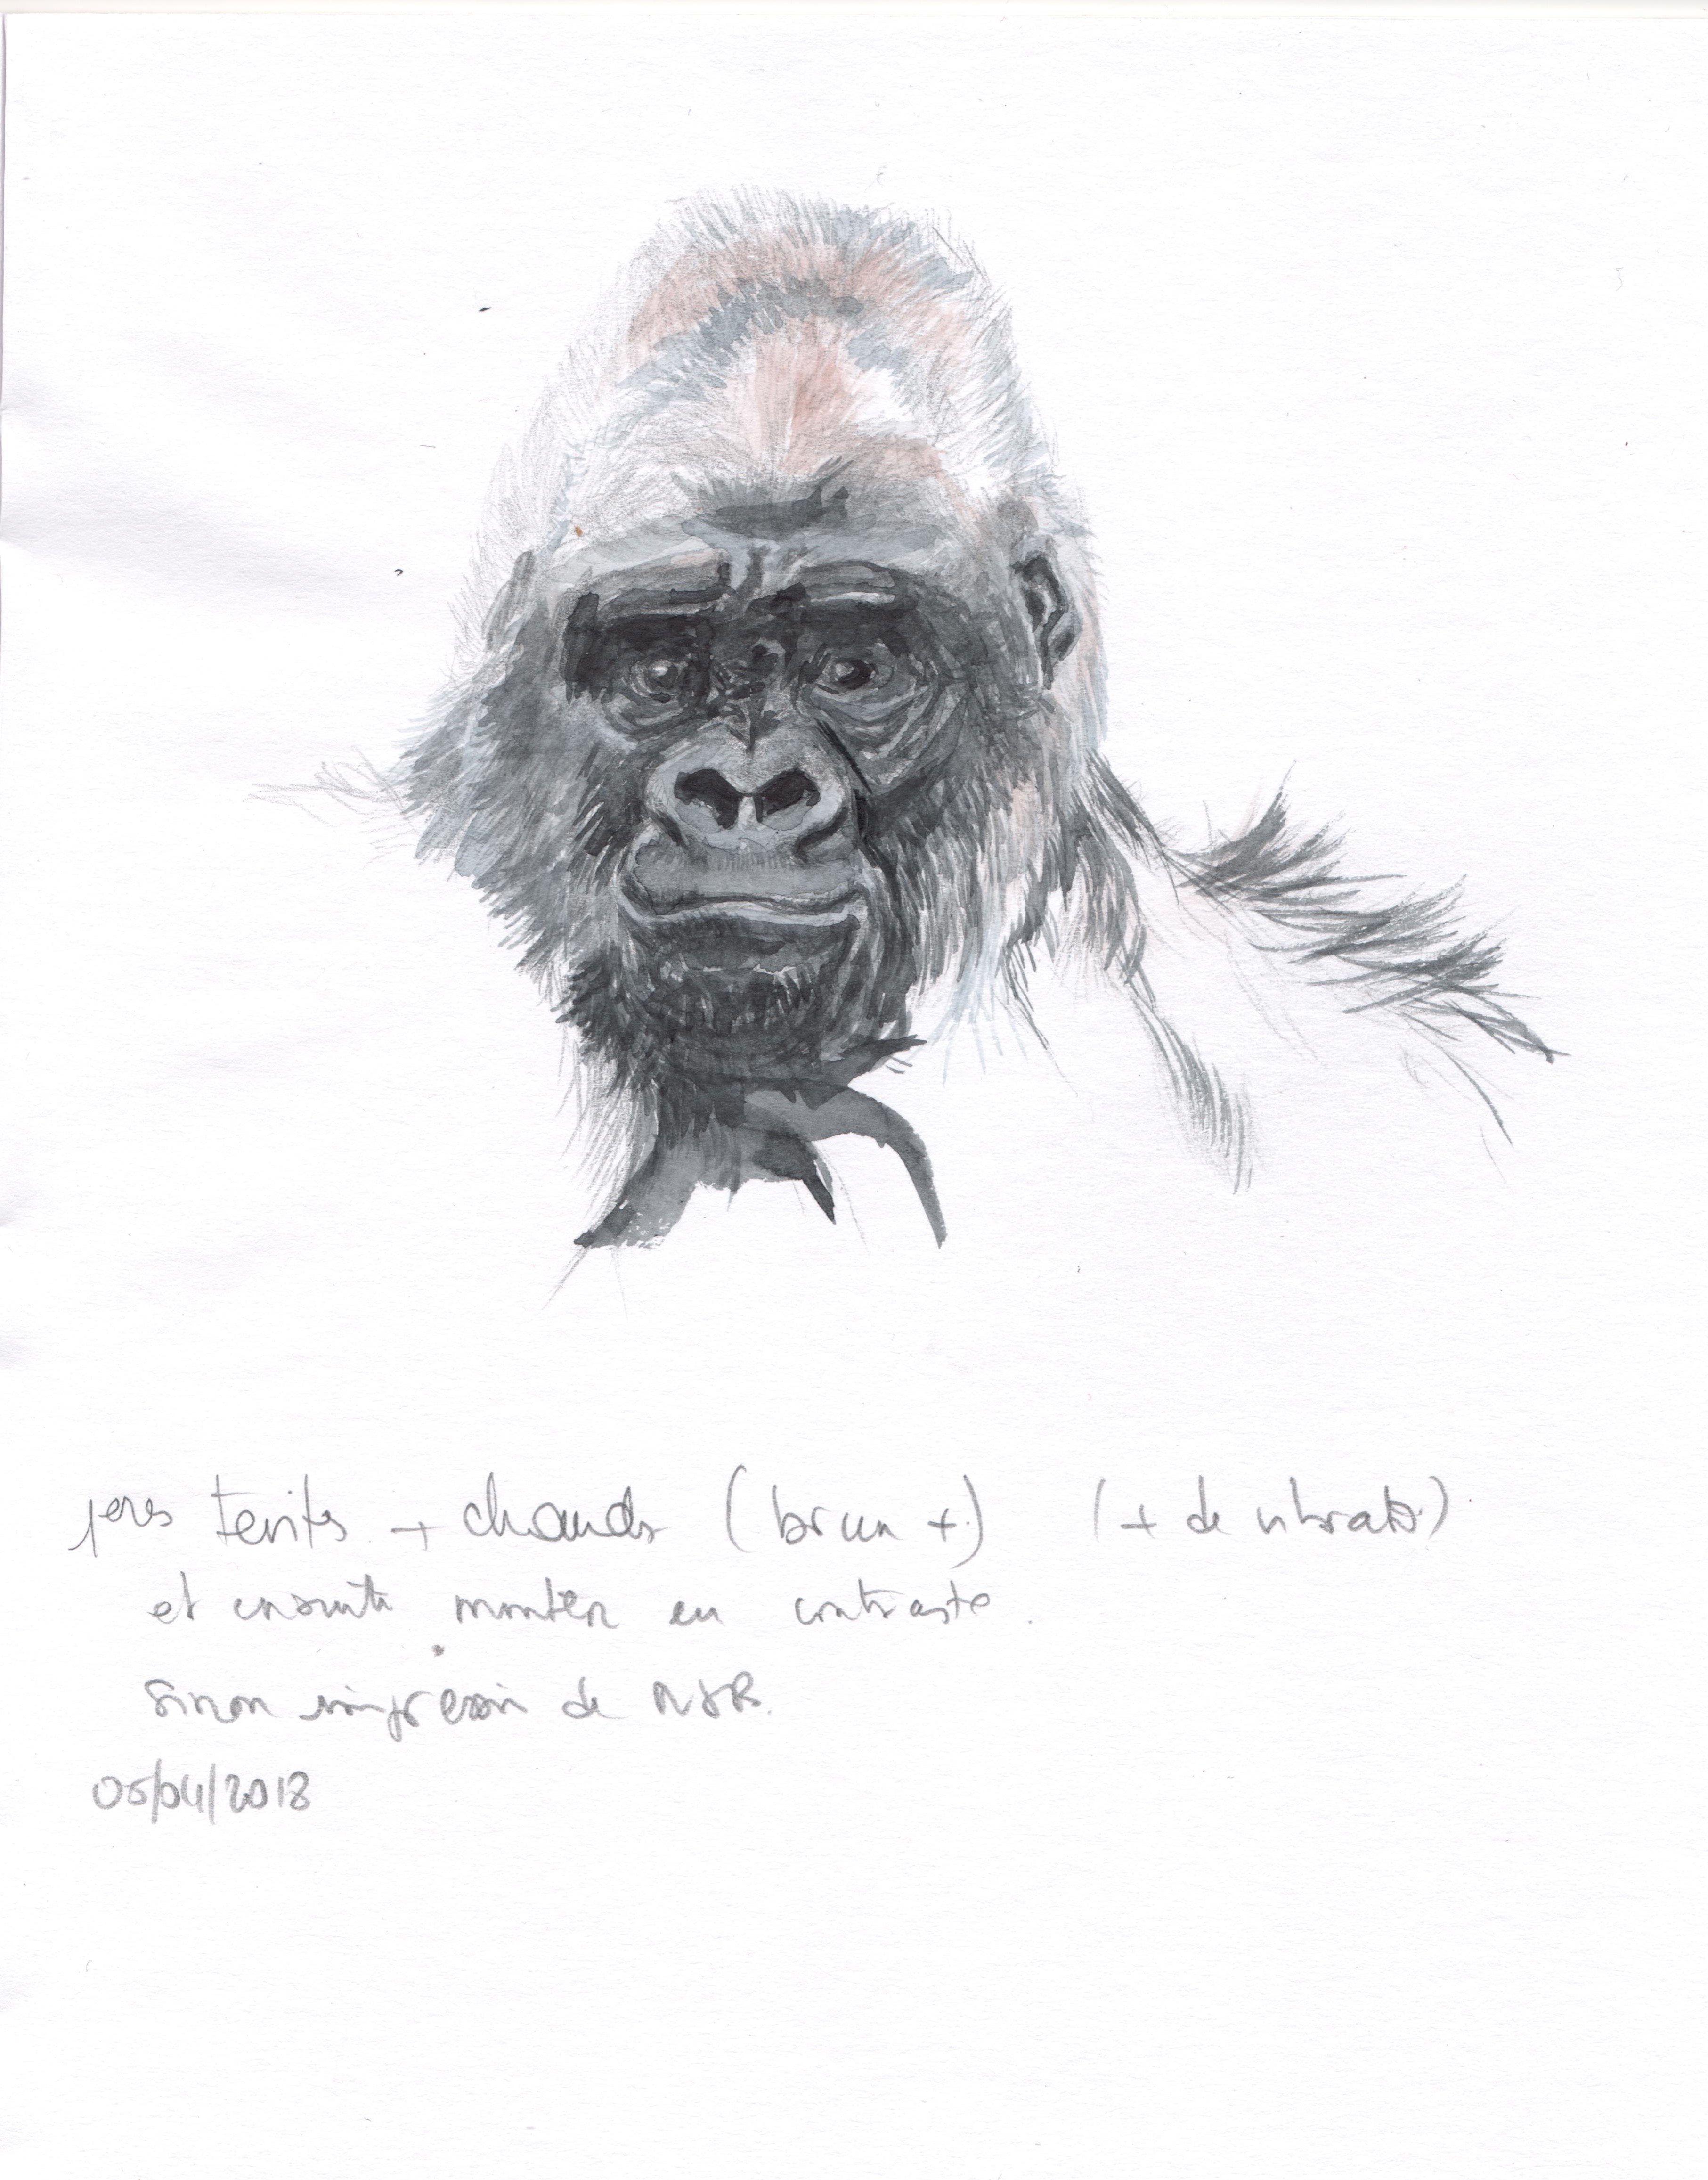 1eres teintes + chauds (brun +) (+ de vibrato)
et ensuite monter en contraste.
Sinon impression de N&B.
05/04/2018